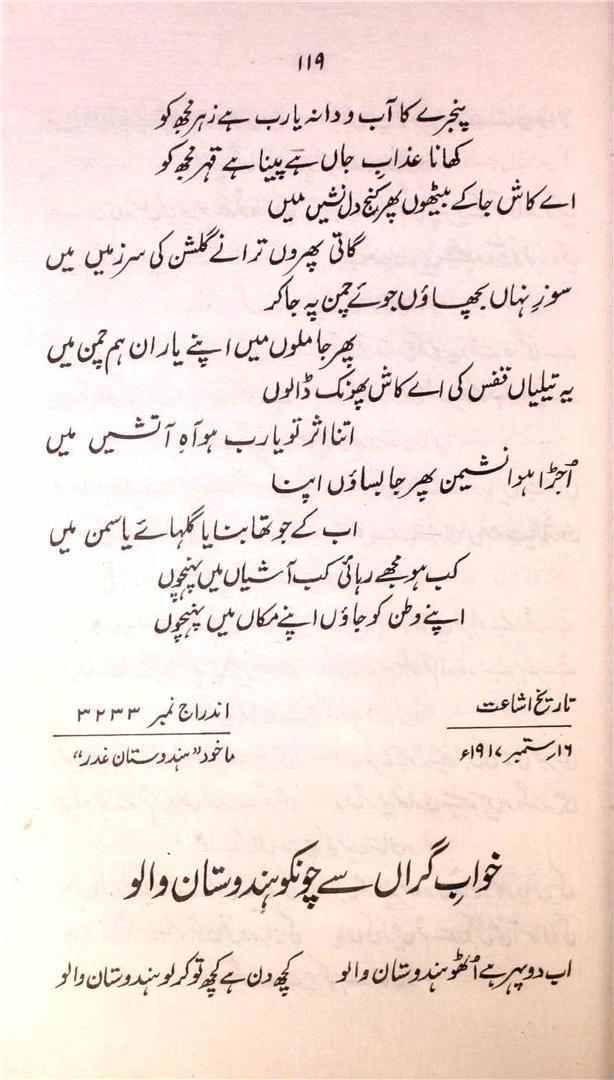 ۱۱۹
پنجرے کا آب و دانہ یارب ہے زہر مجھ کو
کھانا عذابِ جاں ہے پینا ہے قہر مجھ کو
اے کاش جا کے بیٹھوں پھر کنج دل نشیں میں
گاتی پھروں ترانے گلشن کی سرزمیں میں
سوزِ نہاں بجھاؤں جوئے چمن پہ جا کر
پھر جا ملوں میں اپنے یارانِ ہم چمن میں
یہ تیلیاں قفس کی اے کاش پھونک ڈالوں
اتنا اثر تو یارب ہو آہِ آتشیں میں
اُجڑا ہوا نشیمن پھر جا بساؤں اپنا
اب کے جو تھا بنایا گلہائے یاسمن میں
کب ہو مجھے رہائی کب آشیاں میں پہنچوں
اپنے وطن کو جاؤں اپنے مکاں میں پہنچوں
تاریخ اشاعت اندراج نمبر ۳۲۳۳
۱۶ ستمبر ۱۹۱۷ء ماخوذ "ہندوستان غدر"
خوابِ گراں سے چونکو ہندوستان والو
اب دوپہر ہے اُٹھو ہندوستان والو کچھ دن ہے کچھ تو کر لو ہندوستان والو